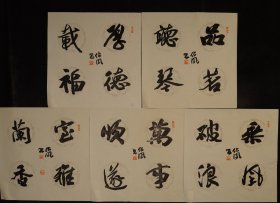 厚德
載福
品茗
聽琴
室雅
蘭香
萬事
順遂
乘風
破浪